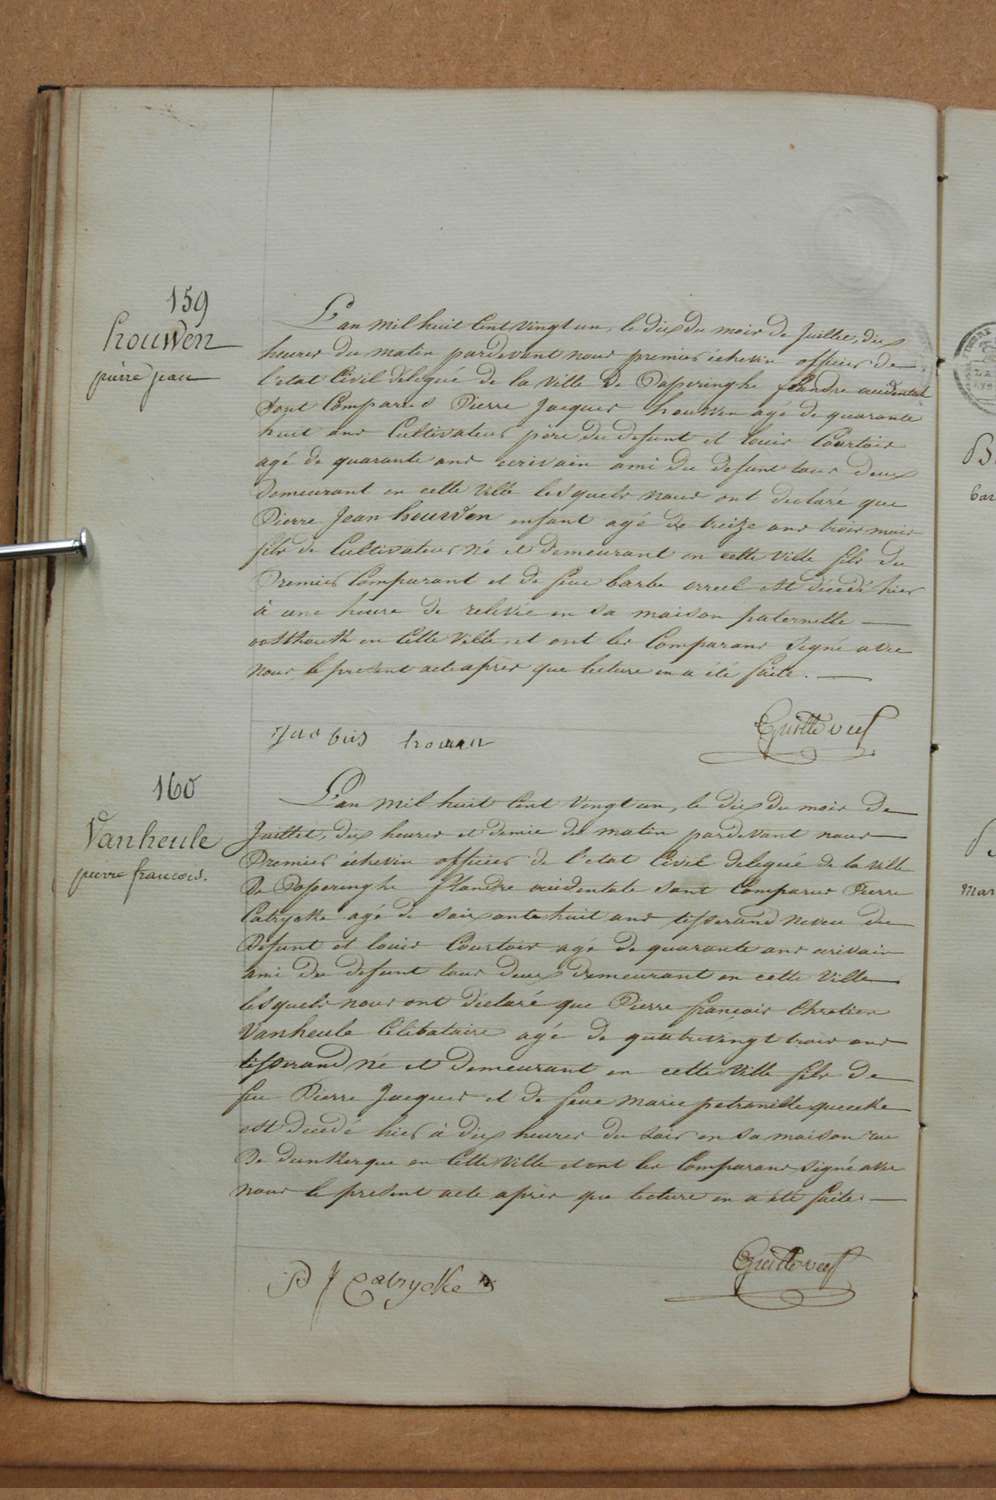 159
houwen
pierre jean
L'an mil huit Cent vingt un, le dix du mois de Juillet, dix
heures du matin pardevant nous premier échevin officier de
l'etat Civil delegué de la Ville de Poperinghe flandre occidentale
Sont Comparus Pierre Jacques houwen agé de quarante
huit ans Cultivateur père du defunt et louis Courtois
agé de quarante ans ecrivain ami du defunt tous deux
demeurant en cette Ville lesquels nous ont declaré que
Pierre Jean houwen enfant agé de treize ans trois mois
fils de Cultivateur né et demeurant en cette Ville fils du
Premier Comparant et de feue barbe orreel est décedé hier
à une heure de relevée en sa maison paternelle
oosthouk en Cette Ville, et ont les Comparans Signé avec
nous le présent acte après que lecture en a été faite.
Jacobus houwen
160
Vanheule
pierre francois.
L'an mil huit Cent Vingt un, le dix du mois de
Juillet, dix heures et demie du matin pardevant nous
Premier échevin officier de l'etat Civil delegué de la Ville
De Poperinghe flandre occidentale sont Comparus Pierre
Catrycke agé de soixante huit ans tisserand neveu du
Defunt et louis Courtois agé de quarante ans ecrivain
ami du defunt tous deux demeurant en cette Ville
lesquels nous ont déclaré que Pierre francois Chretien
Vanheule Célibataire agé de quatrevingt trois ans
tisserand né et demeurant en cette Ville fils de
feu Pierre Jacques et de feue Marie petronille queecke
est decedé hier à dix heures du soir en sa maison rue
De dunkerque en Cette Ville et ont les Comparans signé avec
nous le présent acte après que lecture en a été faite.
P J Catrycke